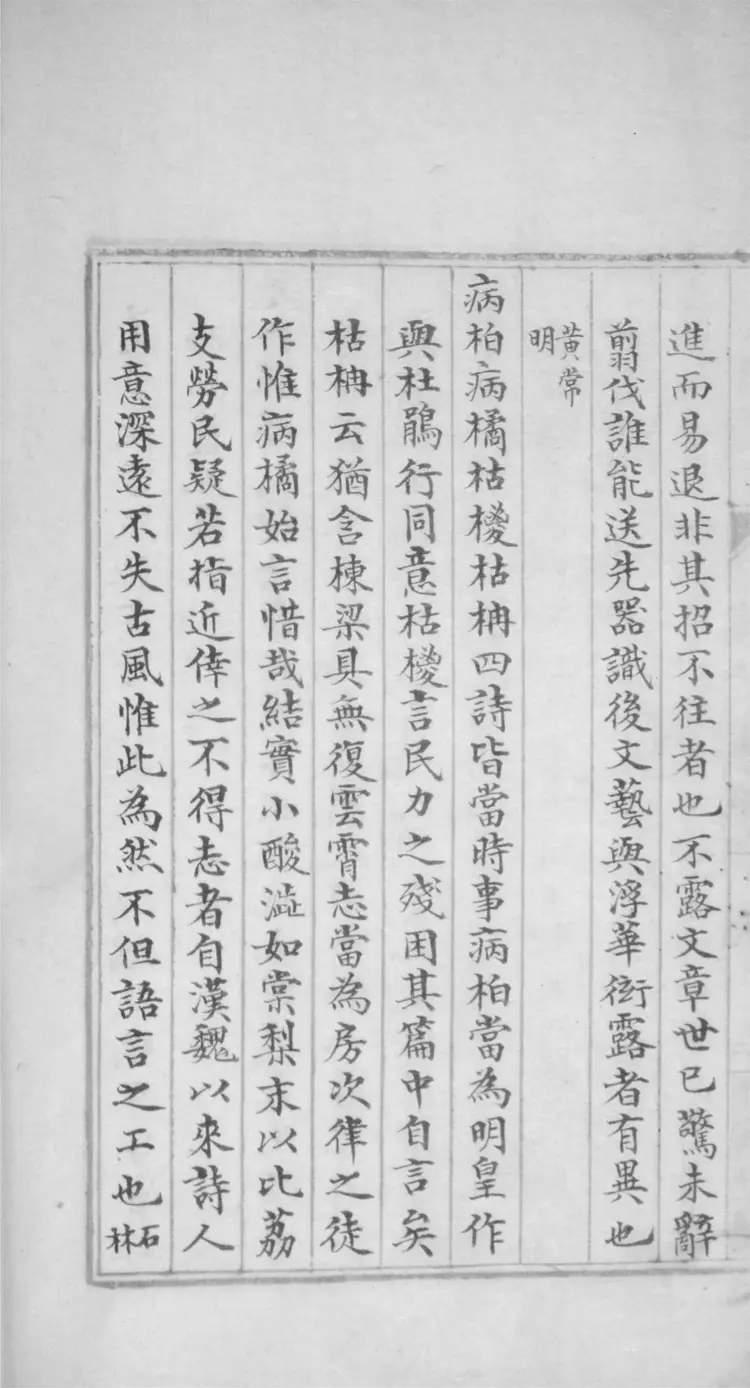 進而易退非其招不往者也不露文章世已驚未辭
翦伐誰能送先器識後文藝與浮華衒露者有異也
黃常明
病柏病橘枯椶枯柟四詩皆當時事病柏當為明皇作
與杜鵑行同意枯椶言民力之殘困其篇中自言矣
枯柟云猶含棟梁具無復雲霄志當為房次律之徒
作惟病橘始言惜哉結實小酸澁如棠梨末以比荔
支勞民疑若指近倖之不得志者自漢魏以來詩人
用意深遠不失古風惟此為然不但語言之工也石林